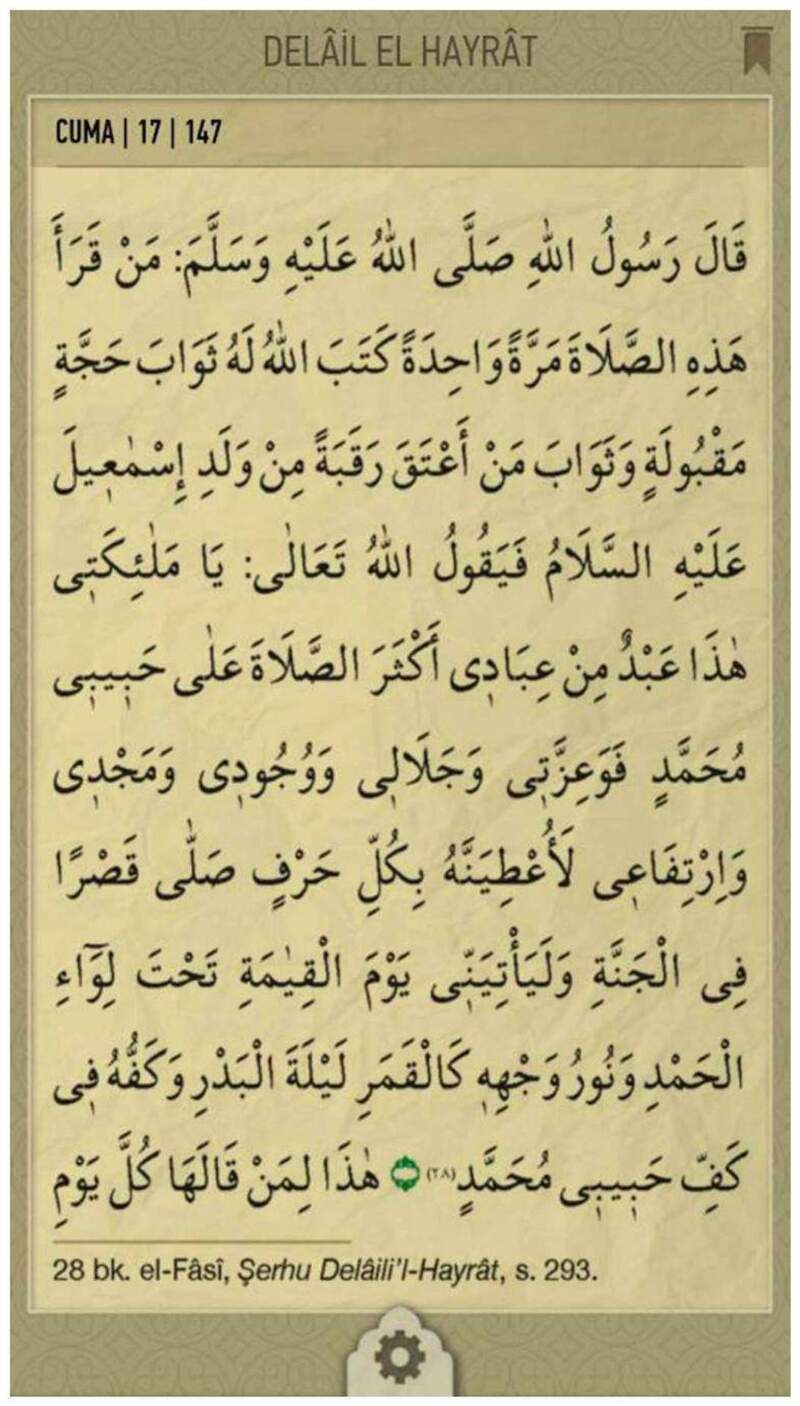 DELÂİL EL HAYRÂT
CUMA | 17 | 147
قَالَ رَسُولُ اللهِ صَلَّى اللهُ عَلَيْهِ وَسَلَّمَ: مَنْ قَرَأَ
هَذِهِ الصَّلَاةَ مَرَّةً وَاحِدَةً كَتَبَ اللهُ لَهُ ثَوَابَ حَجَّةٍ
مَقْبُولَةٍ وَثَوَابَ مَنْ أَعْتَقَ رَقَبَةً مِنْ وَلَدِ إِسْمٰعٖيلَ
عَلَيْهِ السَّلَامُ فَيَقُولُ اللهُ تَعَالٰى: يَا مَلٰئِكَتٖى
هٰذَا عَبْدٌ مِنْ عِبَادٖى أَكْثَرَ الصَّلَاةَ عَلٰى حَبٖيبٖى
مُحَمَّدٍ فَوَعِزَّتٖى وَجَلَالٖى وَوُجُودٖى وَمَجْدٖى
وَاِرْتِفَاعٖى لَأُعْطِيَنَّهُ بِكُلِّ حَرْفٍ صَلّٰى قَصْرًا
فِى الْجَنَّةِ وَلَيَأْتِيَنّٖى يَوْمَ الْقِيٰمَةِ تَحْتَ لِوَٓاءِ
الْحَمْدِ وَنُورُ وَجْهِهٖ كَالْقَمَرِ لَيْلَةَ الْبَدْرِ وَكَفُّهُ فٖى
كَفِّ حَبٖيبٖى مُحَمَّدٍ (٢٨) هٰذَا لِمَنْ قَالَهَا كُلَّ يَوْمِ
28 bk. el-Fâsî, Şerhu Delâili’l-Hayrât, s. 293.